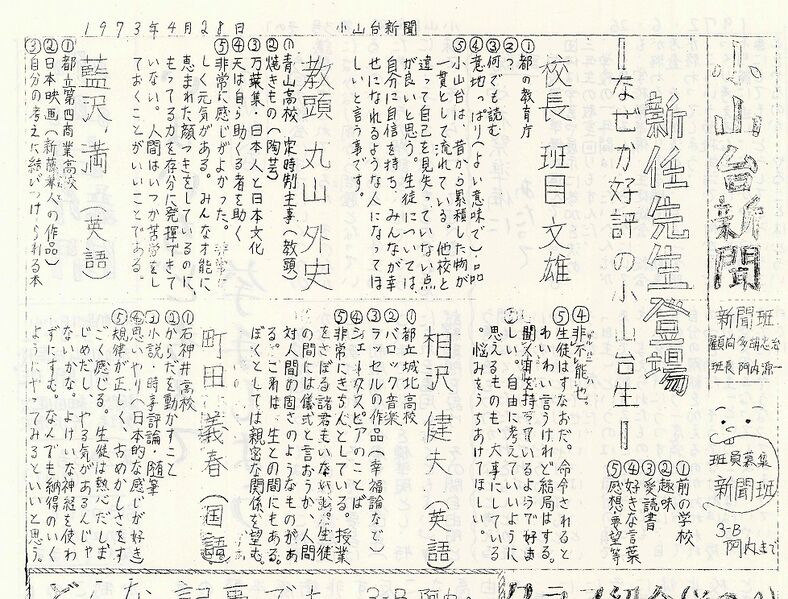 1973年4月28日
小山台新聞
小山台新聞
新聞班
班員募集
新聞班
3-B
阿内まで
新任先生登場
―なぜか好評の小山台生―
①前の学校
②趣味
③愛読書
④好きな言葉
⑤感想・要望等
校長 班目文雄
①都の教育庁
②?
③何でも読む
④意地っぱり(よい意味で)・品
⑤小山台は、昔から累積した物が
一貫として流れている。他校と
違って自己を見失っていない点
が良いと思う。生徒については、
自分に自信を持ち、みんなが幸
せになれるような人になってほ
しいと言う事です。
教頭 丸山外史
①青山高校 定時制主事(教頭)
②焼きもの(陶芸)
③万葉集・日本人と日本文化
④天は自ら助くる者を助く
⑤非常に感じがよかった。非常に
しく元気がある。みんな才能に
恵まれた顔つきをしているのに、
もってる力を存分に発揮できて
いない。人間はいつか苦労をし
ておくことがいいことである。
藍沢 満(英語)
①都立第四商業高校
②日本映画(新藤兼人の作品)
③自分の考えに結びつけられる本
④非不能也。
⑤生徒はすなおだ。命令されると
わいわい言うけれど結局はする。
を持っているようで好ま
しい。自由に考えていいように
思えるものも、大事にしている
。悩みをうちあけてほしい。
相沢健夫(英語)
①都立城北高校
②バロック音楽
③ラッセルの作品(幸福論など)
④シェークスピアのことば
⑤非常にきちんとしている。授業
をさぼる諸君もいないし、生徒
との間には儀式と言おうか、人間
対人間の固さのようなものがあ
る。これは、生との間にもある。
ぼくとしては親密な関係を望む。
町田義春(国語)
①石神井高校
②からだを動かすこと
③小説・時事評論・随筆
④思いやり(日本的な感じが好き)
⑤規律が正しく、古めかしさをす
ごく感じる。生徒は熱心だしま
じめだし、やる気があるんじゃ
ないかな。よけいな神経を使わ
ずにすむ。なんでも納得のいく
ようにやってみるといいと思う。